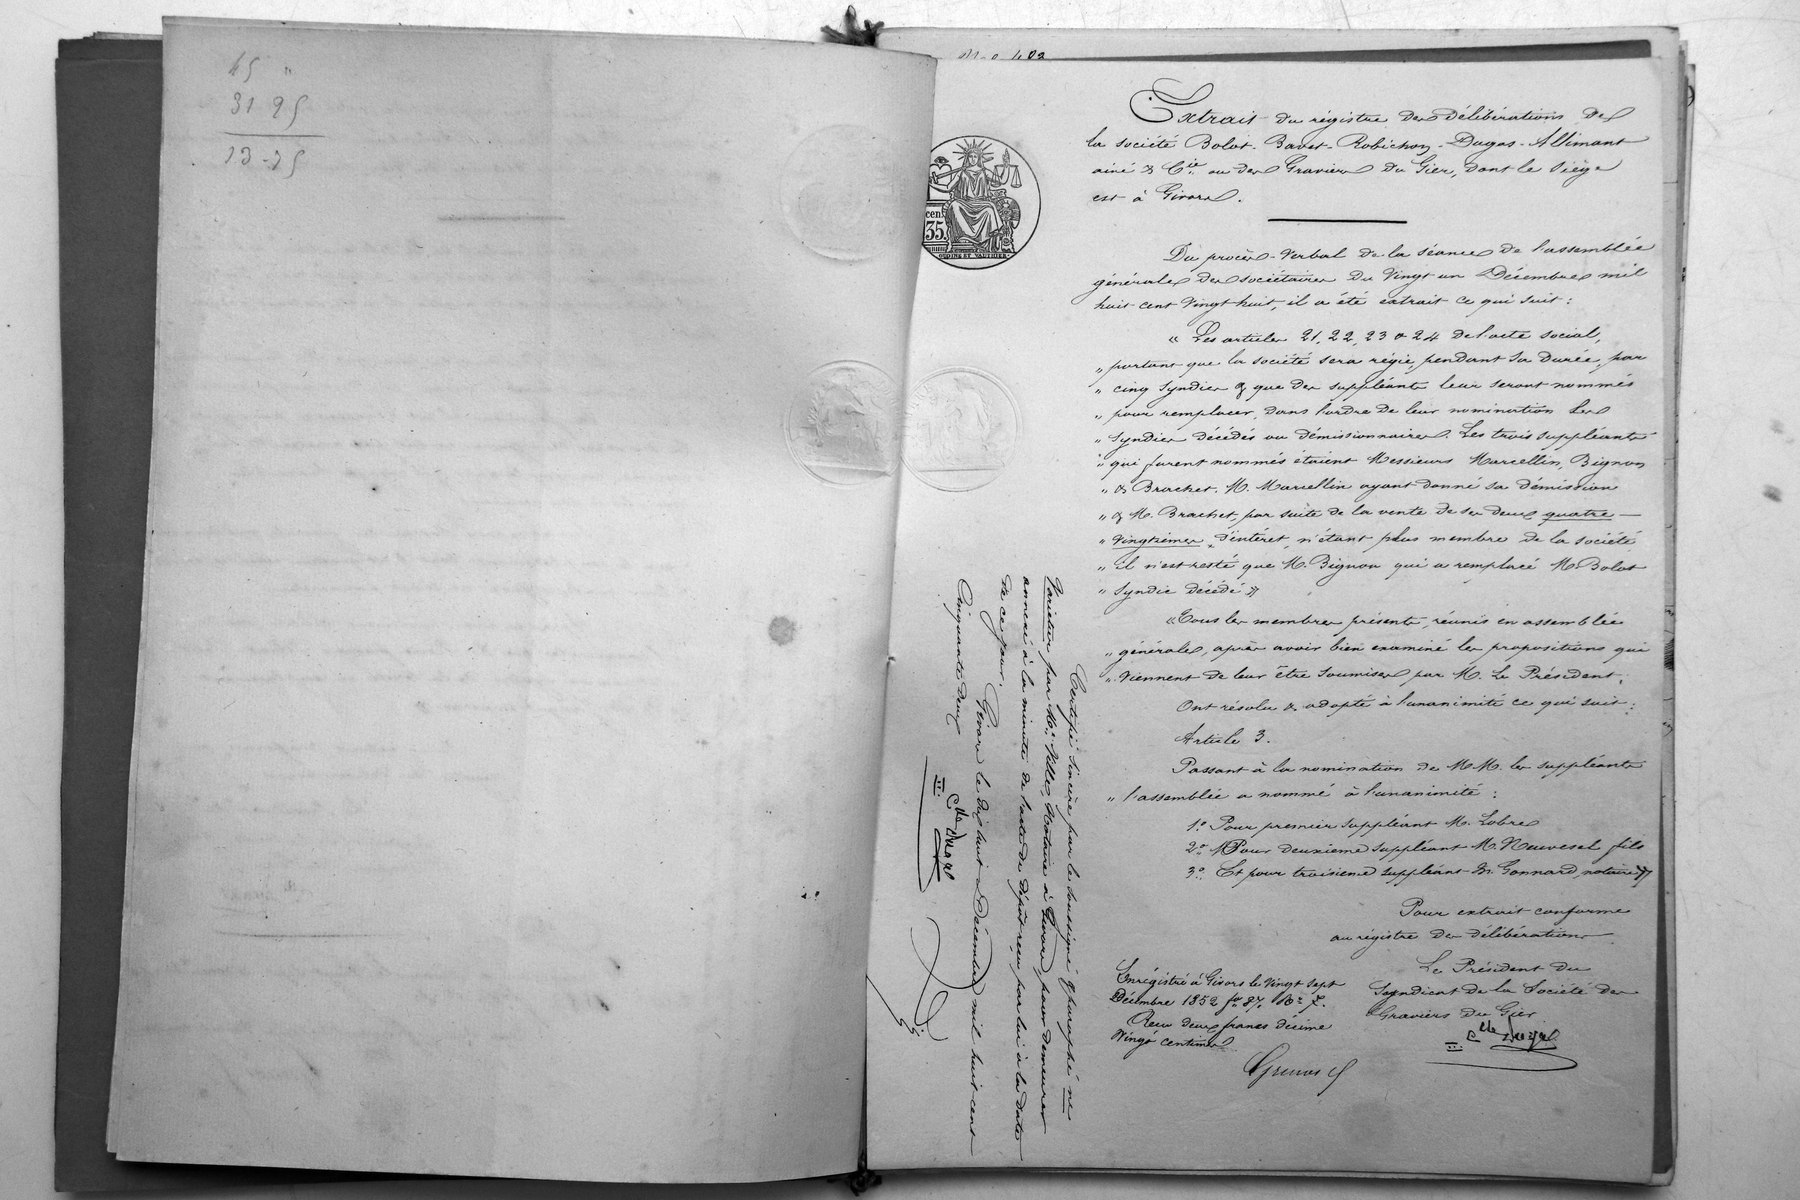 45 "
31 25
13-75
N° 402
Extrait du régistre des délibérations de
la société Bolot-Bavet-Robichon-Dugas-Allimant
ainé & Cie ou des Graviers du Gier, dont le siège
est à Givors.
cen. 35.
OUDINÉ ET VAUTHIER
Du procès-verbal de la séance de l'assemblée
générale des sociétaires du Vingt un Décembre mil
huit cent vingt huit, il a été extrait ce qui suit :
« Les articles 21, 22, 23 & 24 de l'acte social,
" portant que la société sera régie, pendant sa durée, par
" cinq syndics & que des suppléants leur seront nommés
" pour remplacer, dans l'ordre de leur nomination les
" syndics décédés ou démissionnaires. Les trois suppléants
" qui furent nommés étaient Messieurs Marcellin, Bignon
" & Brachet. M. Marcellin ayant donné sa démission
" & M. Brachet, par suite de la vente de ses deux quatre-
" vingtièmes d'intérêt, n'étant plus membre de la société
" il n'est resté que M. Bignon qui a remplacé M. Bolot
" syndic décédé »
« Tous les membres présents, réunis en assemblée
" générale, après avoir bien examiné les propositions qui
" viennent de leur être soumises par M. Le Président,
Ont résolu & adopté à l'unanimité ce qui suit :
Article 3.
Passant à la nomination de MM. les suppléants
" l'assemblée a nommé à l'unanimité :
1° Pour premier suppléant M. Lobre
2° Pour deuxième suppléant M. Neuvesel fils
3° Et pour troisième suppléant M. Gonnard, notaire »
Pour extrait conforme
au régistre des délibérations
Le Président du
Syndicat de la Société des
Graviers du Gier
Enrégistré à Givors le vingt sept
Décembre 1852 fo 87, Ro c 7.
Reçu deux francs décime
vingt centimes
Certifié sincère par le soussigné & paraphé ne
varietur par Me Ville, Notaire à Givors, pour demeurer
annexé à la minute de l'acte de dépôt reçu par lui à la date
de ce jour.
Givors le dix huit Décembre mil huit cent
Cinquante deux